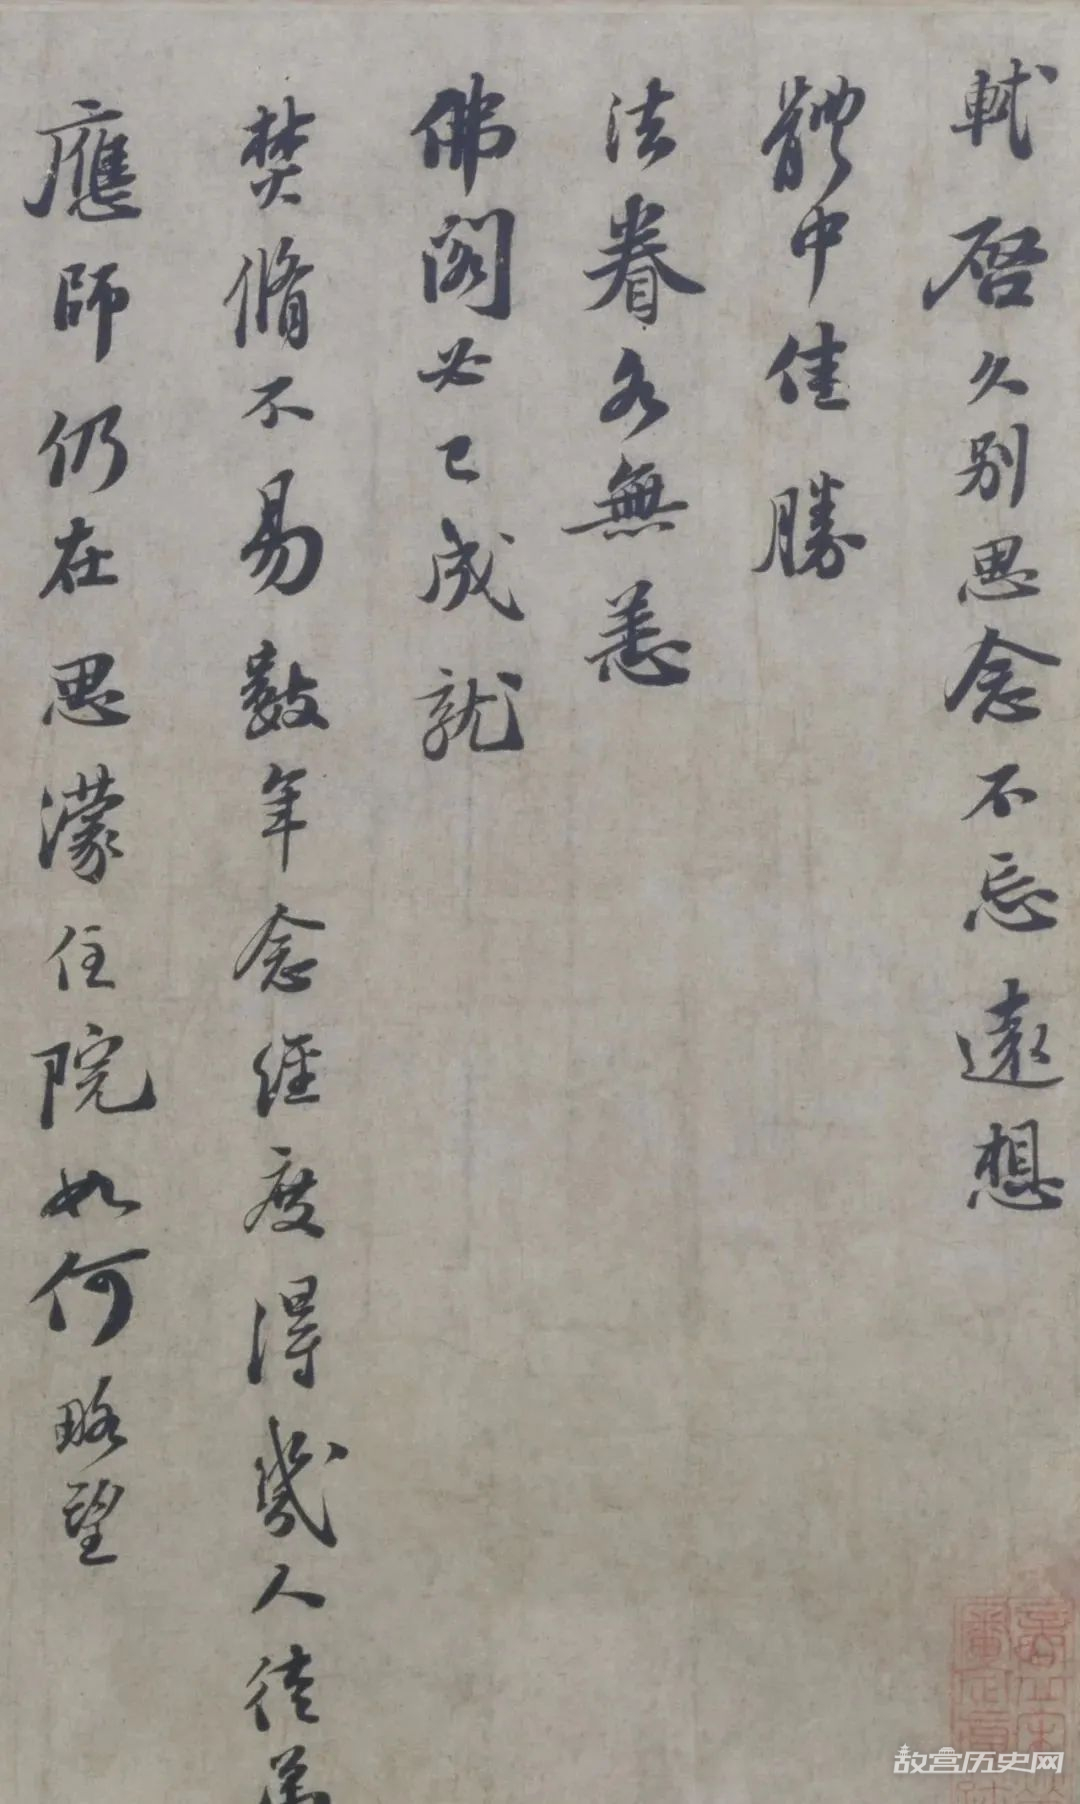 軾啓久別思念不忘遠想
體中佳勝
法眷各無恙
佛閣必已成就
焚脩不易數年念經度得幾人徒弟
應師仍在思濛住院如何略望
故宫历史网